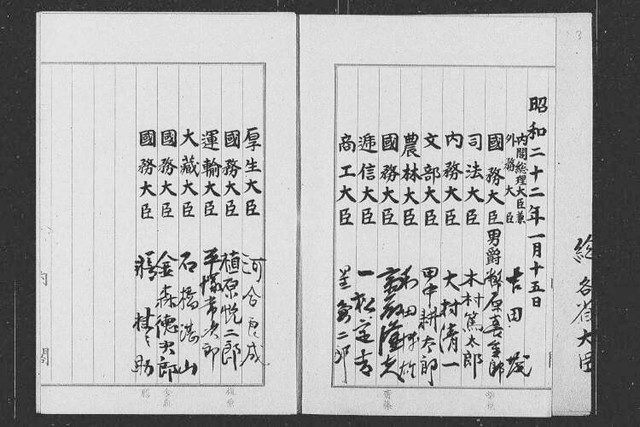 各省大臣
昭和二十二年一月十五日
內閣總理大臣兼
外務大臣
吉田茂
國務大臣 男爵幣原喜重郎
司法大臣 木村篤太郎
內務大臣 大村清一
文部大臣 田中耕太郎
農林大臣 和田博雄
國務大臣 斎藤隆夫
遞信大臣 一松定吉
商工大臣 星島二郎
厚生大臣 河合良成
國務大臣 植原悦二郎
運輸大臣 平塚常次郎
大藏大臣 石橋湛山
國務大臣 金森德次郎
國務大臣 膳桂之助
內閣